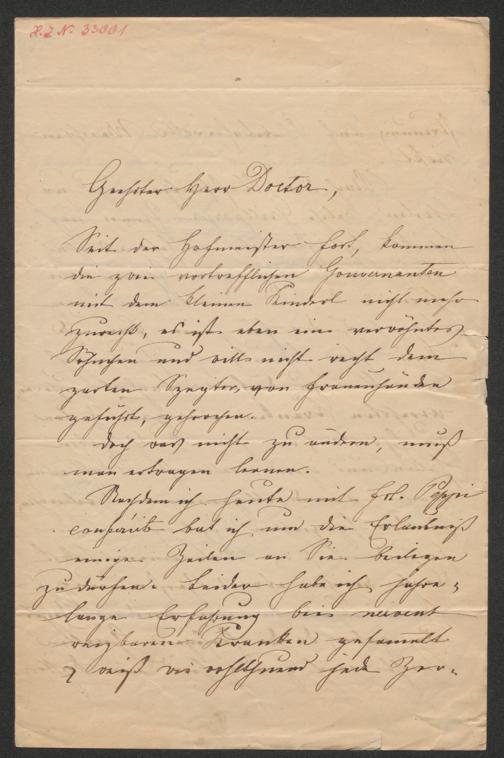 H. I. N. 33001
Geehrter Herr Doctor,
Seit der Hofmeister fort, kommen
die zwei vortrefflichen Gouvernanten
mit dem kleinen Kinderl nicht mehr
zurecht, es ist eben ein verwöhntes
Söhnchen und will nicht recht dem
zarten Szepter, von Frauenhänden
geführt, gehorchen.
Doch was nicht zu ändern, muß
man ertragen lernen.
Nachdem ich heute mit Frl. Peppi
bat ich um die Erlaubniß
einige Zeilen an Sie beilegen
zu dürfen. Leider habe ich jahre-
lange Erfahrung bei
reizbaren Kranken gesamelt
& weiß wie wohlthuend jede Zer-